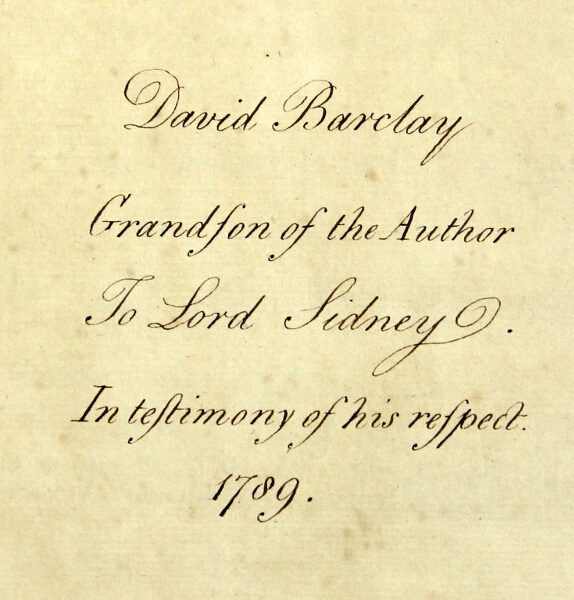 David Barclay
Grandſon of the Author
To Lord Sidney.
In teſtimony of his reſpect.
1789.